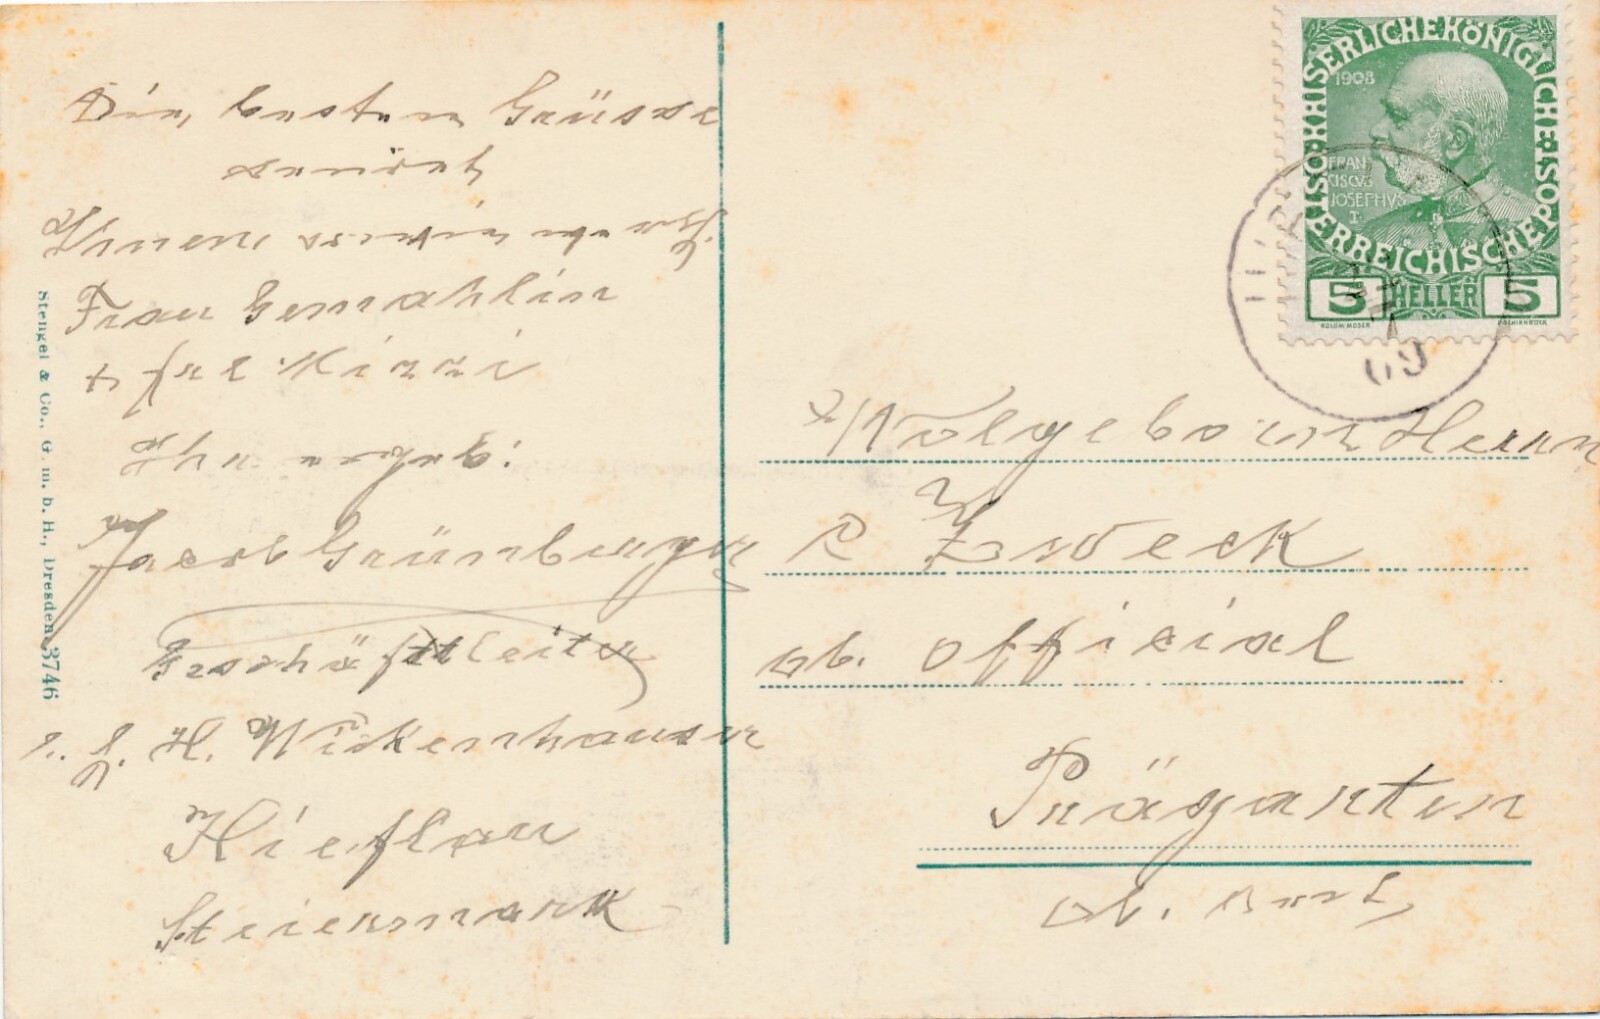 Die besten Grüsse
sendet
Ihnen, sowie
Frau Gemahlin
+ frl Mizzi
Ihr ergeb:
Jacob Grünberger
Geschäftsleiter
H. Wickenhauser
Hieflau
Steiermark
Stengel & Co., G. m. b. H., Dresden 38746
KAISERLICHE KÖNIGLICHE ÖSTERREICHISCHE POST
1908
FRAN
CISCVS
JOSEPHVS
I.
5 HELLER 5
09
Wolgeboren Herrn
Zweck
ob. Official
Prägarten
ob. Öst.